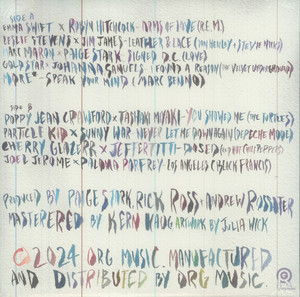 SIDE A
EMMA SWIFT x ROBYN HITCHCOCK - ARMS OF LOVE (R.E.M.)
LESLIE STEVENS x JIM JAMES - LEATHER & LACE (DON HENLEY + STEVIE NICKS)
MARC MARON x PAIGE STARK - SIGNED D.C. (LOVE)
GOLDSTAR x JOHANNA SAMUELS - I FOUND A REASON (THE VELVET UNDERGROUND)
MORE* - SPEAK YOUR MIND (MARC BENNO)
SIDE B
POPPY JEAN CRAWFORD x TASHAKI MIYAKI - YOU SHOWED ME (THE TURTLES)
PARTICLE KID x SUNNY WAR - NEVER LET ME DOWN AGAIN (DEPECHE MODE)
CHERRY GLAZERR x JEFFERTITTI - DOSED (RED HOT CHILI PEPPERS)
JOEL JEROME x PALOMA PARFREY - LOS ANGELES (BLACK FRANCIS)
PRODUCED BY PAIGE STARK, RICK ROSS + ANDREW ROSSITER
MASTERERED BY KERN HAUG ARTWORK BY JULIA WICK
©2024 ORG MUSIC. MANUFACTURED
AND DISTRIBUTED BY ORG MUSIC.